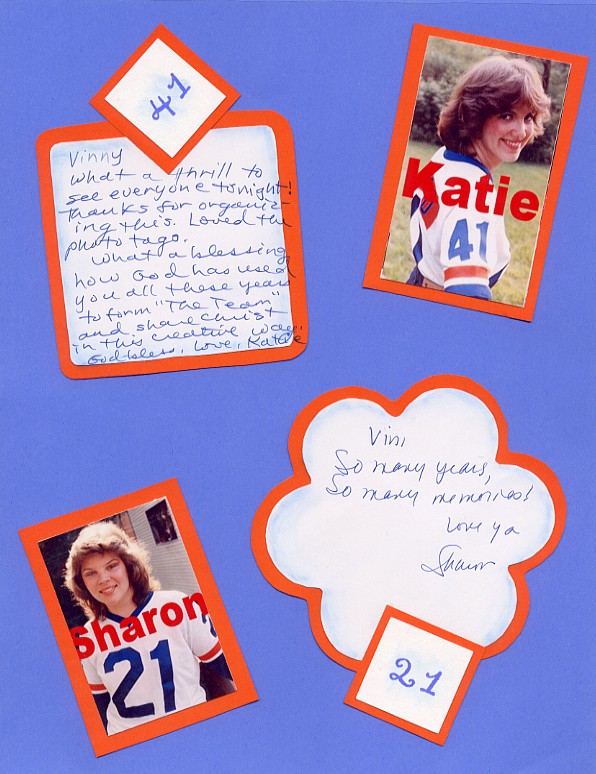 41
Vinny
what a thrill to
see everyone tonight!
Thanks for organiz-
ing this. Loved the
photo tags.
What a blessing
how God has used
you all these years
to form "The Team"
and share Christ
in this creative way.
God bless, Love, Katie
Katie
41
Vin,
So many years,
So many memories!
Love ya
Sharon
Sharon
21
21